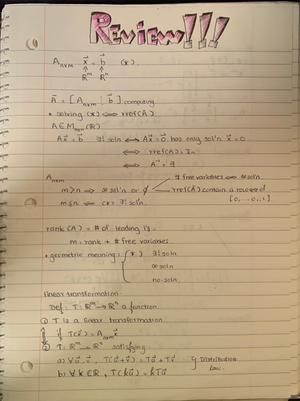 REVIEW!!!
A_{n×m} x⃗ = b⃗ (*)
↑ ↑
ℝ^m ℝ^n
Ā = [A_{n×m} | b⃗] computing
* solving (*) ⟺ rref(Ā)
A ∈ M_{n×n}(ℝ)
Ax⃗ = b⃗ ∃! soln ⟺ Ax⃗ = 0⃗ has only sol'n x⃗ = 0
⟺ rref(A) = I_n
⟺ A^{-1} ∃
A_{n×m} ∃ free variables ⟺ ∞ soln
m>n ⟹ ∞ sol'n or ∅ rref(A) contain a row of
[0, ..0, 1]
m≤n ⟸ (*) ∃! soln
rank(A) = # of leading 1s.
m = rank + # free variables
* geometric meaning: { (*) ∃! soln
∞ soln
no soln
linear transformation
Def: T: ℝ^m → ℝ^n a function
① T is a linear transformation
if T(x⃗) = A_{n×m} x⃗
② T: ℝ^m → ℝ^n satisfying
a) ∀ u⃗, v⃗, T(u⃗+v⃗) = Tu⃗ + Tv⃗ } Distribution
Law.
b) ∀ k ∈ ℝ, T(ku⃗) = kTu⃗